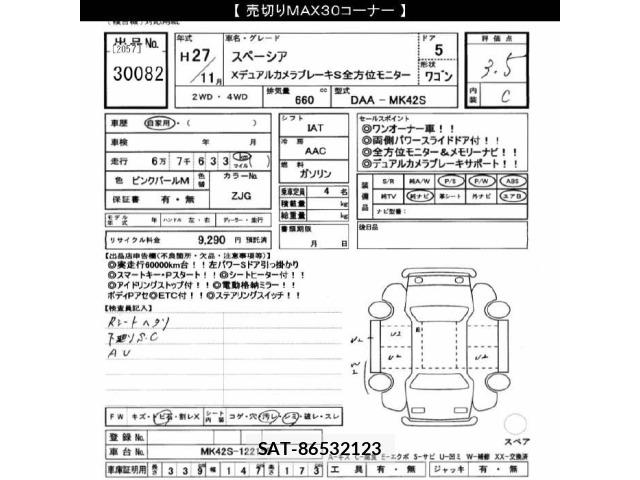 【 売切りMAX30コーナー 】
出品No.
[2057]
30082
年式
H27
11月
車名・グレード
スペーシア
XデュアルカメラブレーキS全方位モニター
ドア
5
形状
ワゴン
評価点
3.5
内装
C
2WD ・ 4WD
排気量
660
cc
型式
DAA - MK42S
車歴
自家用・(
)
車検
年
月
走行
6万 7千 6 3 3
km
マイル
色
ピンクパールM
色替
カラーNo.
ZJG
保証書
有 ・ 無
モデル年式
年
ハンドル
左 ・ 右
ディーラー ・ 並行
リサイクル料金
9,290 円
預託済
シフト
IAT
冷房
AAC
燃料
ガソリン
乗車定員
4 名
積載量
kg
総重量
kg
書類期限
月
日
セールスポイント
◎ワンオーナー車！！
◎両側パワースライドドア付！！
◎全方位モニター＆メモリーナビ！！
◎デュアルカメラブレーキサポート！！
装備品
S/R
純A/W
P/S
P/W
ABS
純TV
純ナビ
革シート
外ナビ
エアB
ナビ型番：
後日品
【出品店申告欄(不良箇所・欠品・注意事項等)】
◎実走行60000km台！！左パワーSドア引っ掛かり
◎スマートキー・Pスタート！！◎シートヒーター付！！
◎アイドリングストップ付！！◎電動格納ミラー！！
ボディPアセ◎ETC付！！◎ステアリングスイッチ！！
【検査員記入】
Rシートヘタリ
下廻りS.C
AU
U2
U2
U2
W2
FW
キズ・トビ石・割レX
シート内張
コゲ・穴・汚レ・シミ・破レ・スレ
スペア
登録No.
車台No.
MK42S-122
SAT-86532123
E-エクボ S-サビ U-凹ミ W-補修 XX-交換済
車庫証明用
長さ
3 3 9
幅
1 4 7
高さ
1 7 3
工具
有 ・ 無
ジャッキ
有 ・ 無